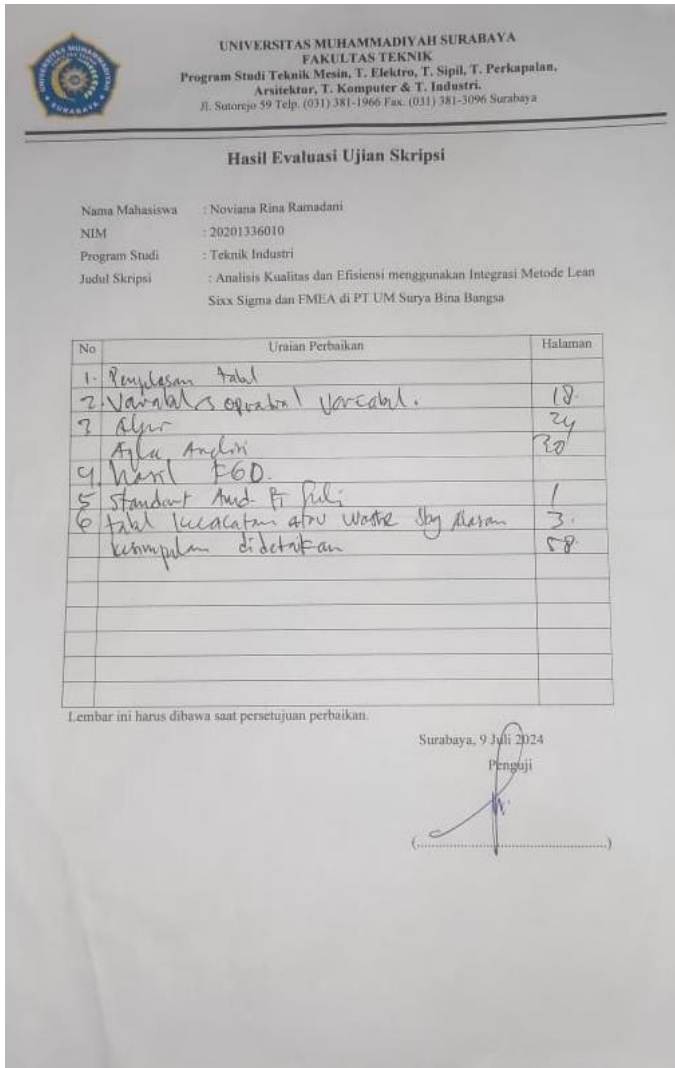 UNIVERSITAS MUHAMMADIYAH SURABAYA
FAKULTAS TEKNIK
Program Studi Teknik Mesin, T. Elektro, T. Sipil, T. Perkapalan,
Arsitektur, T. Komputer & T. Industri.
Jl. Sutorejo 59 Telp. (031) 381-1966 Fax. (031) 381-3096 Surabaya
Hasil Evaluasi Ujian Skripsi
Nama Mahasiswa : Noviana Rina Ramadani
NIM : 20201336010
Program Studi : Teknik Industri
Judul Skripsi : Analisis Kualitas dan Efisiensi menggunakan Integrasi Metode Lean
Sixx Sigma dan FMEA di PT UM Surya Bina Bangsa
No Uraian Perbaikan Halaman
1. Penjelasan tabel
2. Variabel 18.
3 Alur 24
30
4. hasil FGD.
5 Standart 1
6 tabel kecacatan atau waste sbg alasan 3.
kesimpulan didetailkan 58.
Lembar ini harus dibawa saat persetujuan perbaikan.
Surabaya, 9 Juli 2024
Penguji
(..................................................)